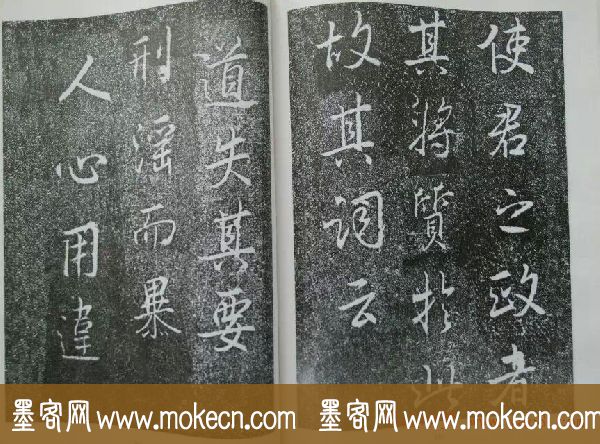 使君之政者
其将質於此
故其詞云
道失其要
刑淫而暴
人心用違
墨客网 www.mokecn.com 墨客网 www.mokecn.com